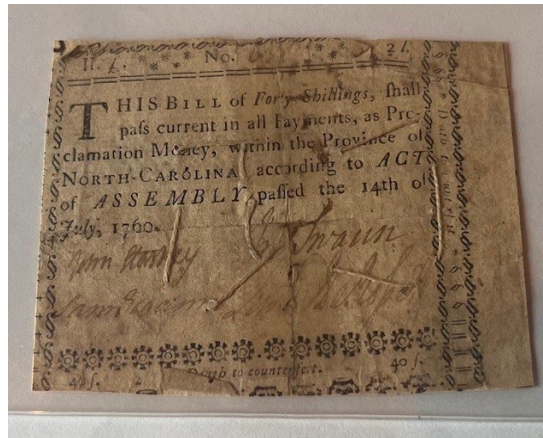 No.
2 l.
THIS BILL of Forty Shillings, shall
pass current in all Payments, as Pro-
clamation Money, within the Province of
NORTH-CAROLINA according to ACT
of ASSEMBLY passed the 14th of
July, 1760.
John Starkey
Jn Swann
Lewis
Death to counterfeit.
40 s.
40 s.